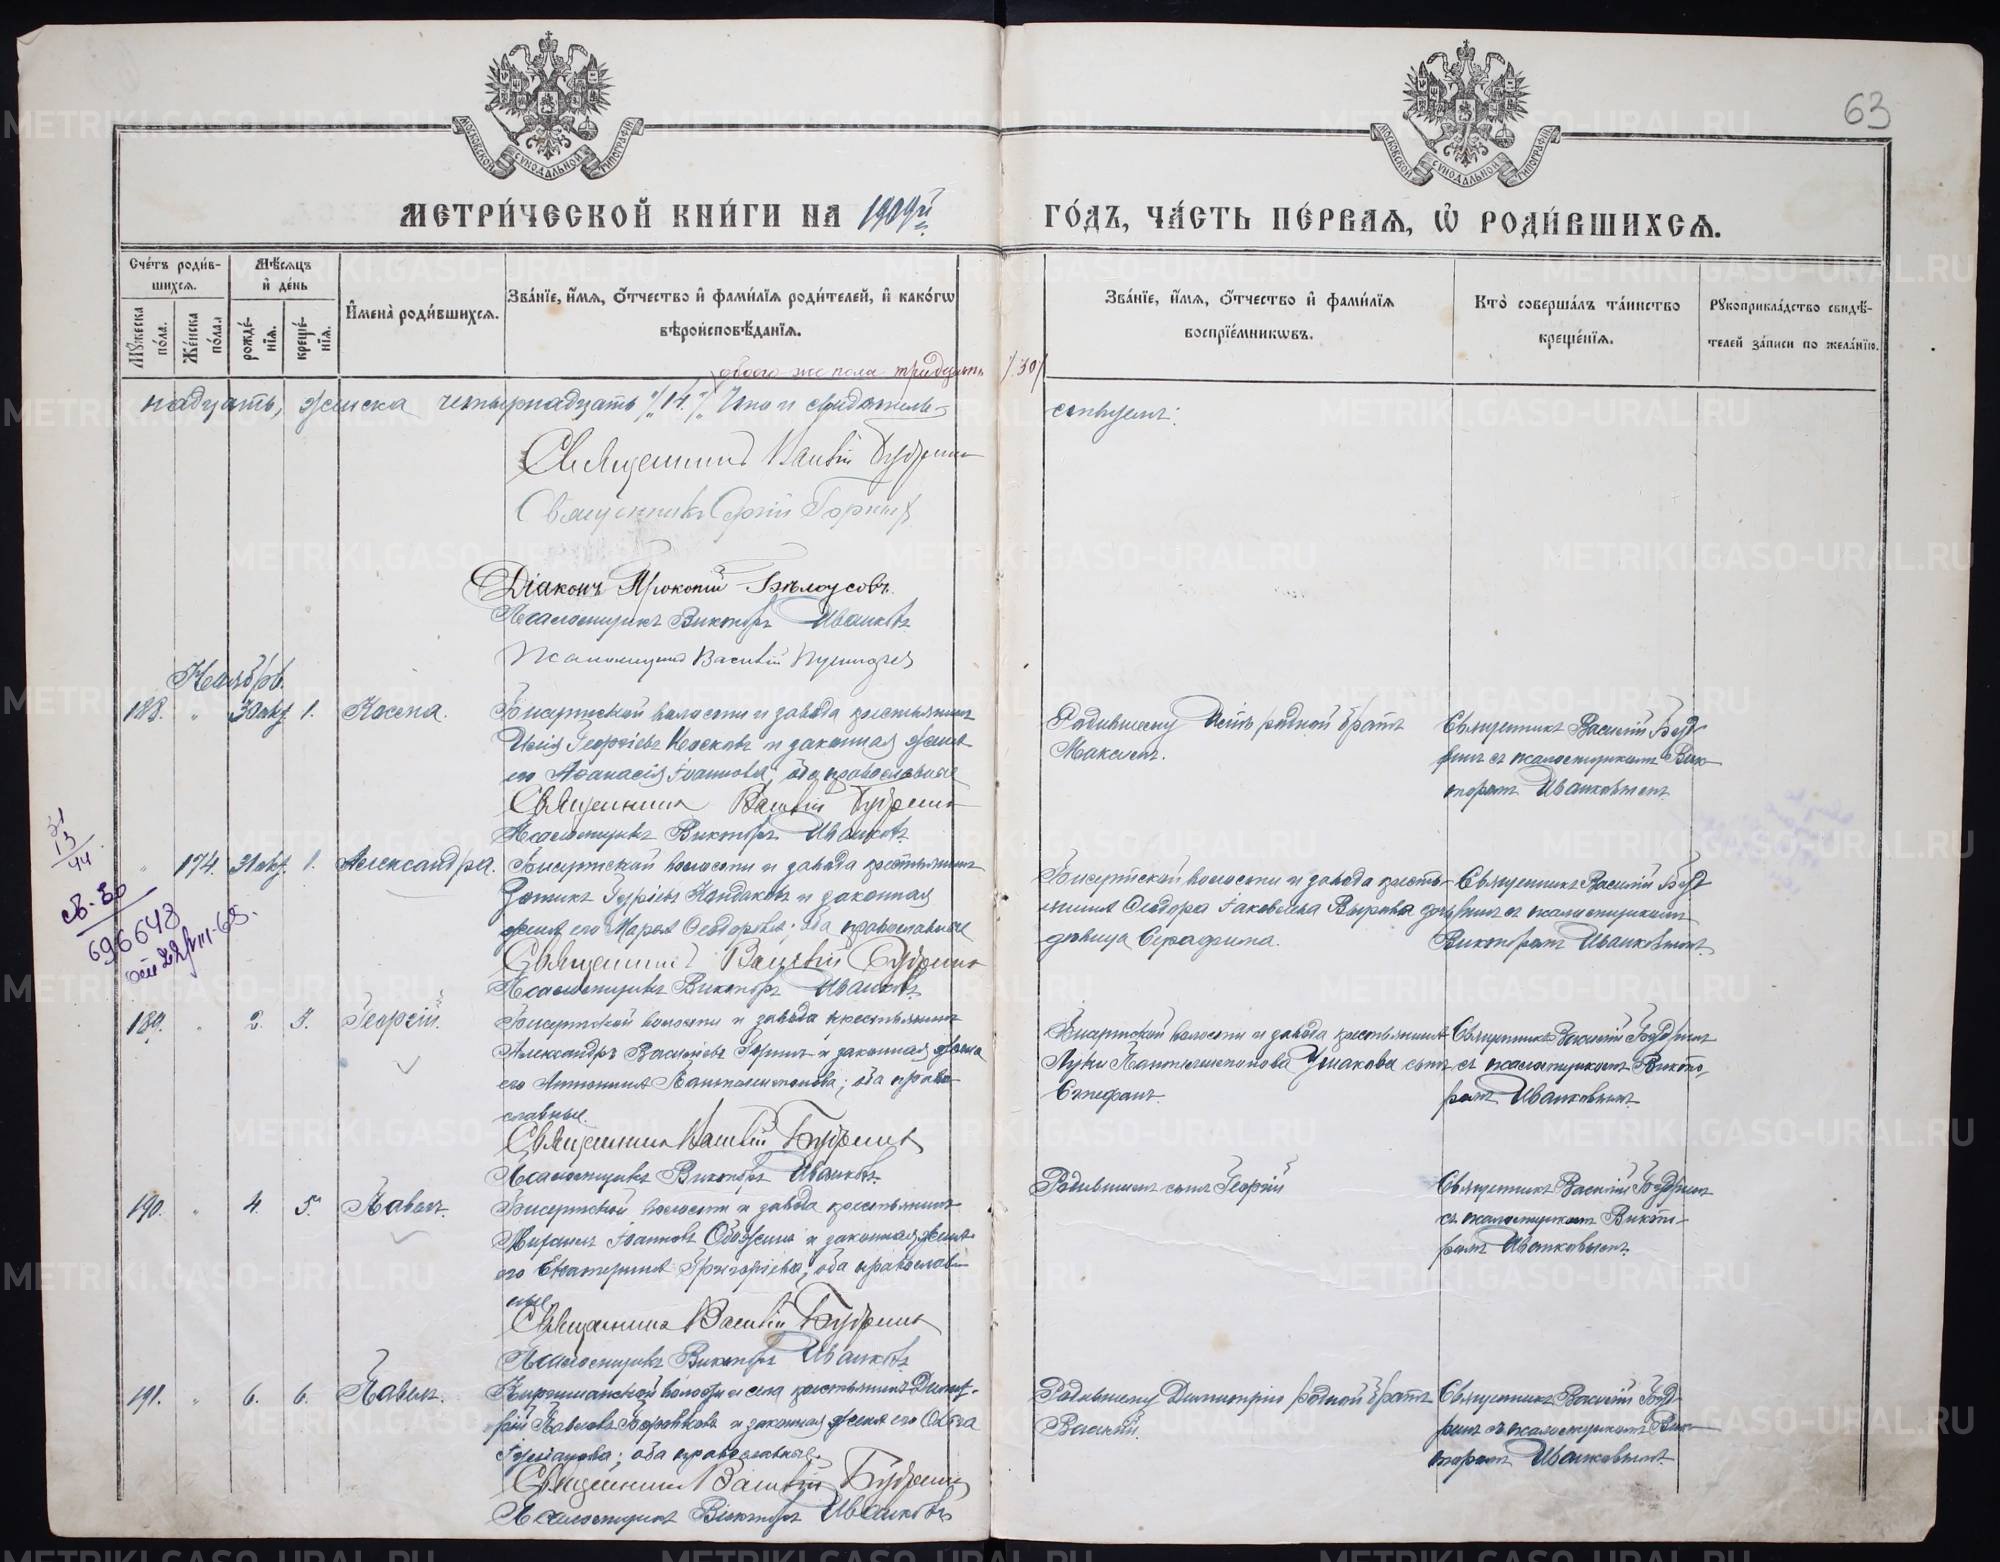 63
МОСКОВСКОЙ СѴНОДАЛЬНОЙ ТИПОГРАФІИ
МОСКОВСКОЙ СѴНОДАЛЬНОЙ ТИПОГРАФІИ
МЕТРИ́ЧЕСКОЙ КНИ́ГИ НА 1909й ГО́ДЪ, ЧА́СТЬ ПЕ́РВАѦ, Ѡ҆ РОДИ́ВШИХСѦ.
Сче́тъ роди́в-
шихсѧ.
Мѣ́сѧцъ
и҆ де́нь
Мꙋ́жеска
по́ла.
Же́нска
по́ла.
рожде́-
нїѧ.
креще́-
нїѧ.
И҆мена̀ роди́вшихсѧ.
Зва́нїе, и҆́мѧ, ѻ҆́тчество и҆ фами́лїѧ роди́телей, и҆ како́гѡ
вѣроисповѣ́данїѧ.
Зва́нїе, и҆́мѧ, ѻ҆́тчество и҆ фами́лїѧ
воспрїе́мникѡвъ.
Кто̀ соверша́лъ та́инство
креще́нїѧ.
Рꙋкоприкла́дство свидѣ́-
телей за́писи по жела́нїю.
обоего же пола тридцать /30/
надцать, женска четырнадцать /14./ Что и свидѣтель-
ствуемъ:
Священникъ Василій Будринъ
Священникъ Сергій Горныхъ
Діаконъ Прокопій Бѣлоусовъ.
Псаломщикъ Викторъ Иванковъ
Псаломщикъ Василій
Ноябрь.
188. " 30 окт. 1. Косма.
Бисертской волости и завода крестьянинъ
Илія Георгіевъ Носковъ и законная жена
его Аѳанасія Іоаннова; оба православные
Священникъ Василій Будринъ
Псаломщикъ Викторъ Иванковъ.
Родившему Иліи родной братъ
Максимъ.
Священникъ Василій Буд-
ринъ съ псаломщикомъ Вик-
торомъ Иванковымъ.
" 174. 31 окт. 1. Александра.
Бисертской волости и завода крестьянинъ
Зотикъ Георгіевъ Кандаковъ и законная
жена его Марѳа Ѳеодорова; оба православные
Священникъ Василій Будринъ
Псаломщикъ Викторъ Иванковъ.
Бисертской волости и завода кресть-
янина Ѳеодора Іаковлева Вырова дочь
дѣвица Серафима.
Священникъ Василій Буд-
ринъ съ псаломщикомъ
Викторомъ Иванковымъ.
31
13
44
св-во
696648
22/VIII-68.
189. " 2. 3. Георгій.
Бисертской волости и завода крестьянинъ
Александръ Васильевъ Горинъ и законная жена
его Антонина Пантелеимонова; оба право-
славные.
Священникъ Василій Будринъ
Псаломщикъ Викторъ Иванковъ.
Бисертской волости и завода крестьянина
Луки Пантелеимонова Ушакова сынъ
Стефанъ.
Священникъ Василій Будринъ
съ псаломщикомъ Викто-
ромъ Иванковымъ.
190. " 4. 5. Павелъ.
Бисертской волости и завода крестьянинъ
Миронъ Іоанновъ Обожинъ и законная жена
его Екатерина Григорьева; оба православ-
ные
Священникъ Василій Будринъ
Псаломщикъ Викторъ Иванковъ.
Родившихъ сынъ Георгій
Священникъ Василій Будринъ
съ псаломщикомъ Викто-
ромъ Иванковымъ.
191. " 6. 6. Павелъ.
Киргишанской волости и села крестьянинъ Димит-
рій Павловъ Боровковъ и законная жена его Ольга
оба православные.
Священникъ Василій Будринъ
Псаломщикъ Викторъ Иванковъ
Родившему Димитрію родной братъ
Василій.
Священникъ Василій Буд-
ринъ съ псаломщикомъ Вик-
торомъ Иванковымъ.
METRIKI.GASO-URAL.RU